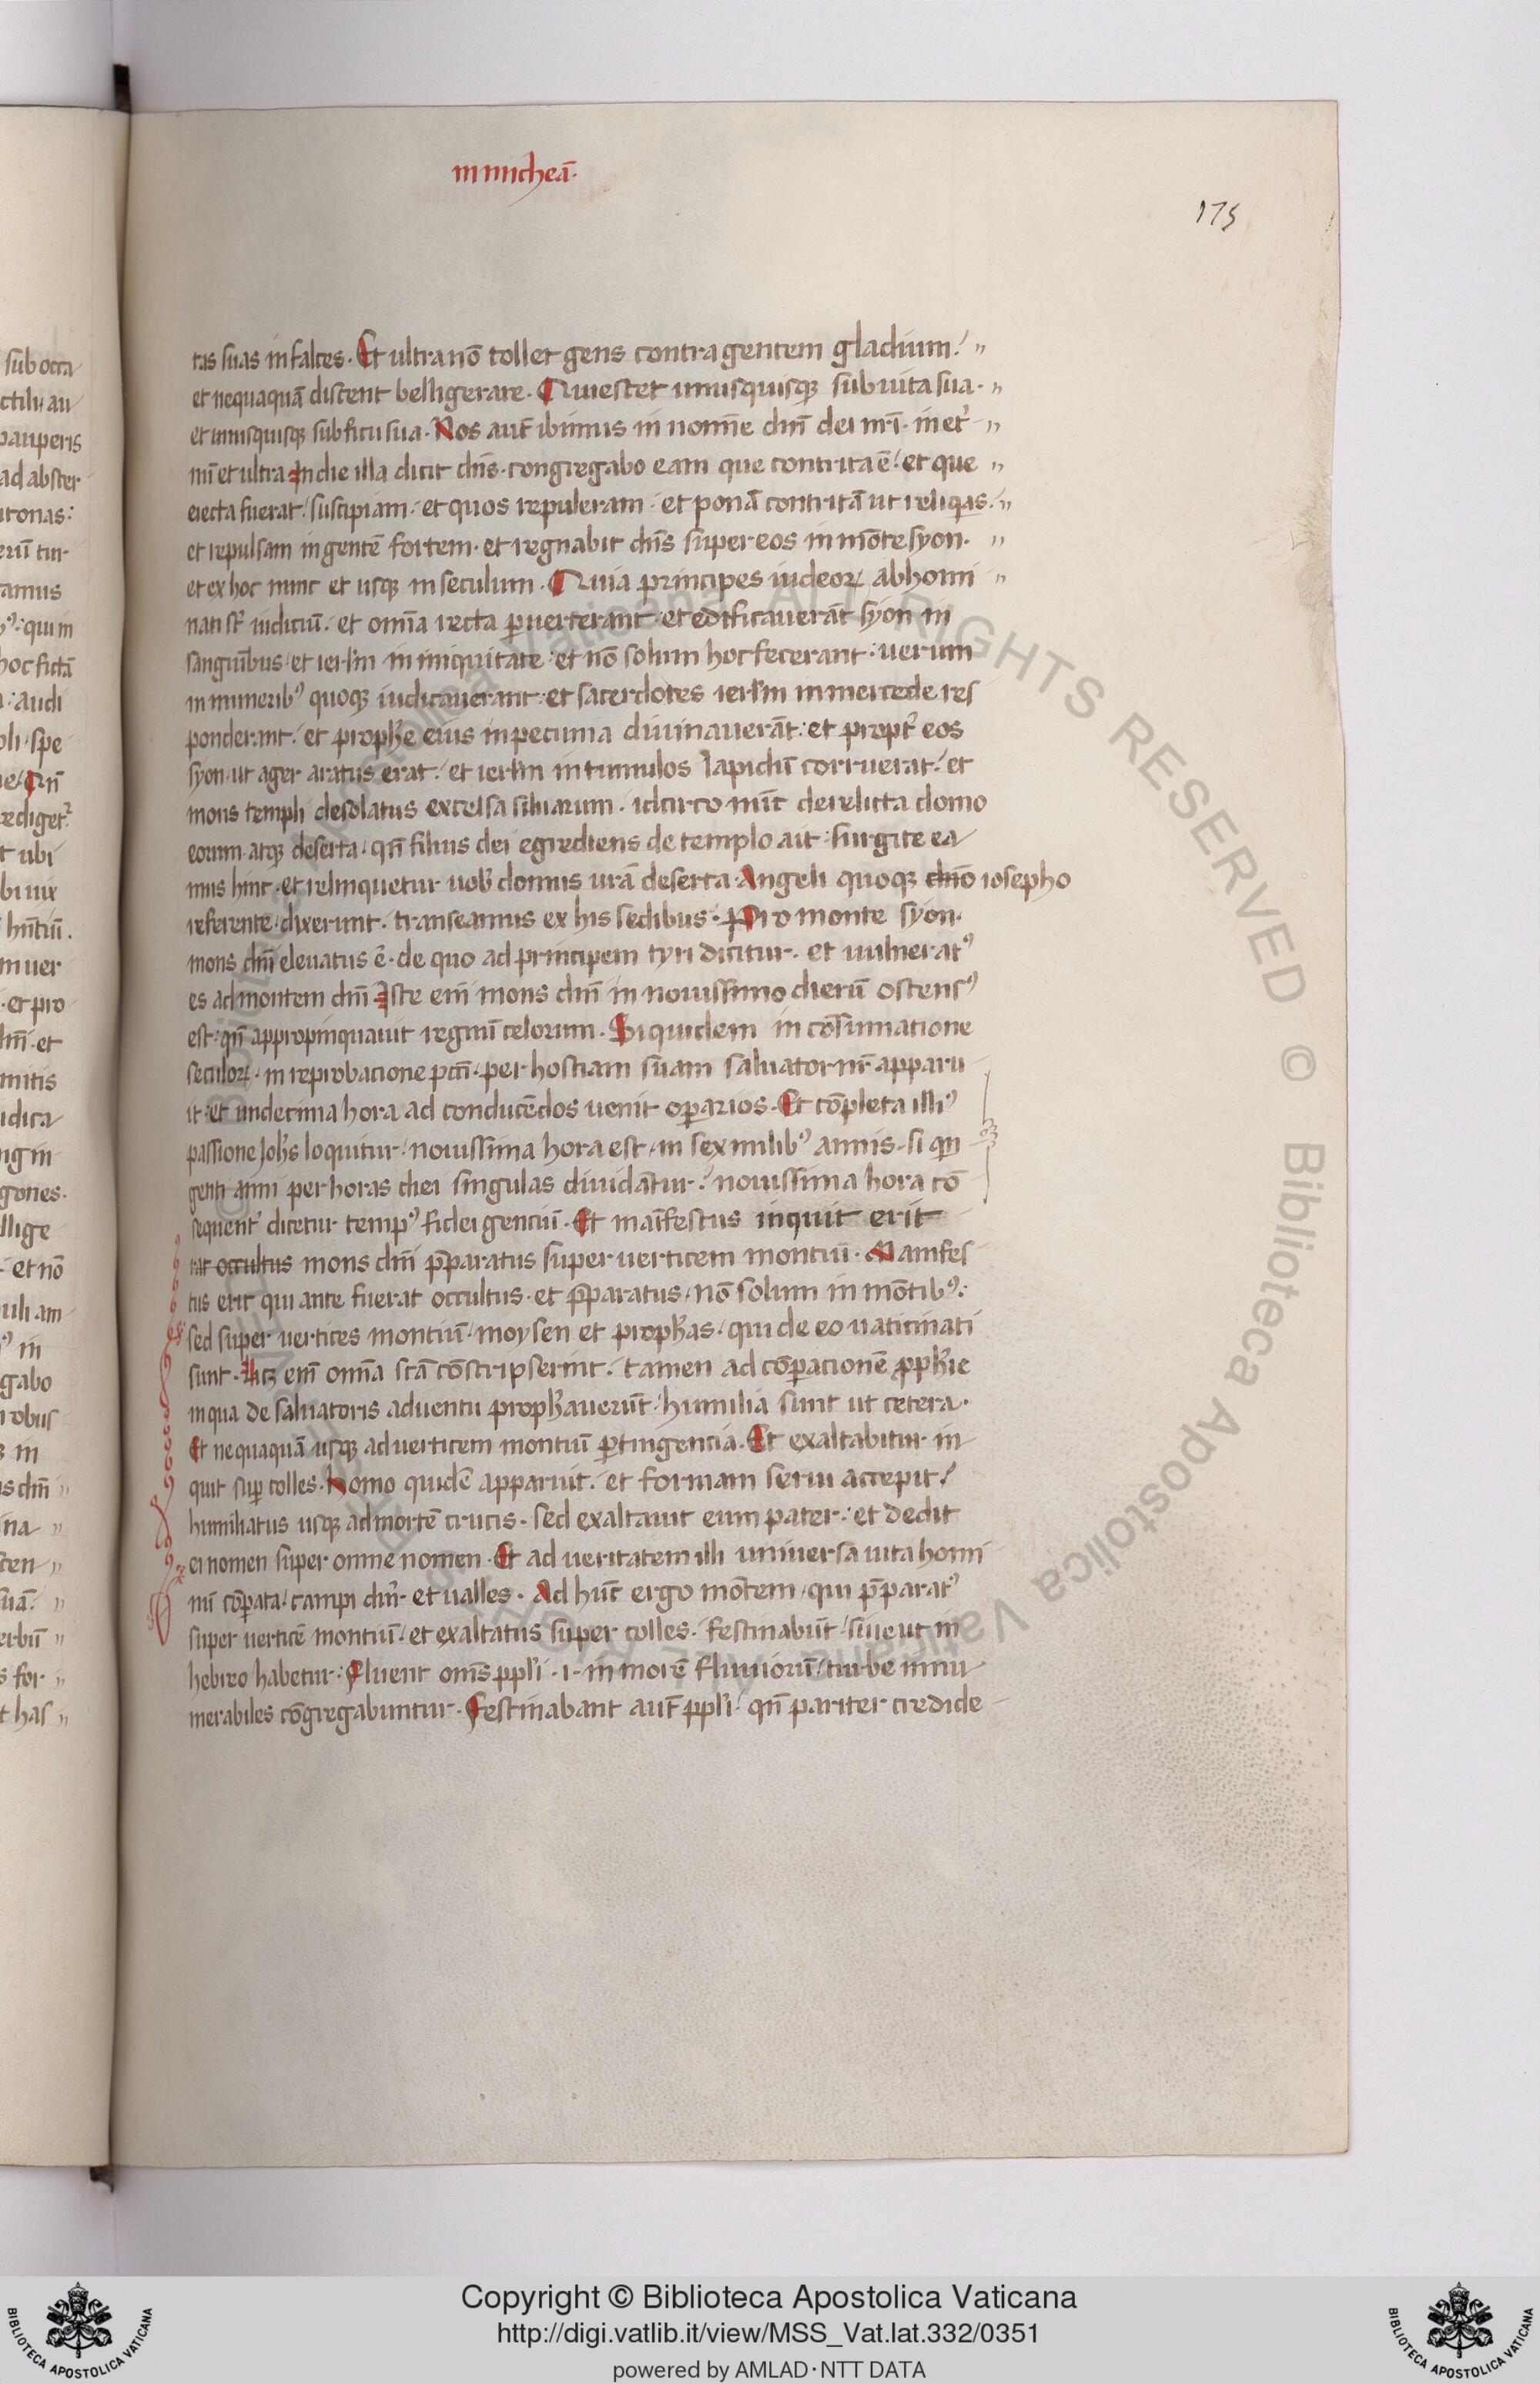 in micheā·
175
tas suas in falces · Et ultra nō tollet gens contra gentem gladium ·/ ”
et nequaquā discent belligerare · Quiescet unusquisqȝ sub uita sua · ”
et unusquisqȝ sub ficu sua · Nos aut̄ ibimus in nomīe dn̄i dei nr̄i · in et’ ”
nū et ultra · In die illa dicit dn̄s · congregabo eam que contrita ē ·/ et que ”
eiecta fuerat ·/ suscipiam · et quos repuleram · et ponā contritā ut reliqias · ”
et repulsam in gentē fortem · et regnabit dn̄s super eos in mōte syon · ”
et ex hoc nunc et usqȝ in seculum · Quia principes iudeoꝝ abhomi ”
nati st̄ iudiciū · et omīa recta ꝑuerterant · et edificauerāt syon in
sanguībus · et ierl̄m in iniquitate · et nō solum hoc fecerant : uerum
in munerib⁹ quoqȝ iudicauerant · et sacerdotes ierl̄m in mercede res
ponderant · et proph̄e eius in pecunia diuinauerāt : et propt’ eos
syon · ut ager aratus erat ·/ et ierl̄m in tumulos lapidū corruerat ·/ et
mons templi desolatus excelsa siluarum · idcirco nūc derelicta domo
eorum · atqȝ deserta · qn̄ filius dei egrediens de templo ait · surgite ea
mus hinc · et relinquetur uob̄ domus ur̄a deserta · Angeli quoqȝ dn̄o iosepho
referente · dixerunt · transeamus ex his sedibus · Pro monte syon ·
mons dn̄i eleuatus ē · de quo ad principem tyri dicitur · et uulnerat⁹
es ad montem dn̄i · Iste eni̅ mons dn̄i in nouissimo dierū ostens⁹
est · qn̄ appropinquauit regnū celorum · Siquidem in cōsumatione
seculoꝝ · in reprobacione pctī · per hostiam suam saluator nr̄ apparu
it · et undecima hora ad conducēdos uenit oꝑarios · Et cōpleta illi⁹
passione joh̄s loquitur · nouissima hora est · in sex milib⁹ annis · si qin
genti anni per horas diei singulas diuidātur ·/ nouissima hora cō
sequent’ dicetur temp⁹ fidei gentiū · Et maīfestus inquit erit
rat occultus mons dn̄i p̄paratus super uerticem montiū · Manifes
tus erit qui ante fuerat occultus · et p̄paratus · nō solum in mōtib⁹ :
sed super uertices montiū · moysen et proph̄as · qui de eo uaticinati
sunt · Licȝ eni̅ omīa scā cōscripserint ·/ tamen ad cōparacionē ꝓph̄ie
in qua de saluatoris aduentu proph̄auerūt · humilia sunt ut cetera ·
Et nequaquā usqȝ ad uerticem montiū ꝑtingencia · Et exaltabitur in
quit suꝑ colles · Homo quidē apparuit ·/ et formam serui accepit ·/
humiliatus usqȝ ad mortē crucis · sed exaltauit eum pater · et dedit
ei nomen super omne nomen · Et ad ueritatem illi uniuersa uita homi
nū cōꝑata · campi dn̄r · et ualles · Ad hūc ergo mōtem · qui p̄parat⁹
super uerticē montiū ·/ et exaltatus super colles · festinabūt · siue ut in
hebreo habetur · Fluent om̄s ppl̄i · i · in morē fluuiorū · turbe innu
merabiles cōgregabuntur · Festinabant aut̄ ppl̄i · qn̄ pariter credide
Copyright © Biblioteca Apostolica Vaticana
http://digi.vatlib.it/view/MSS_Vat.lat.332/0351
powered by AMLAD·NTT DATA